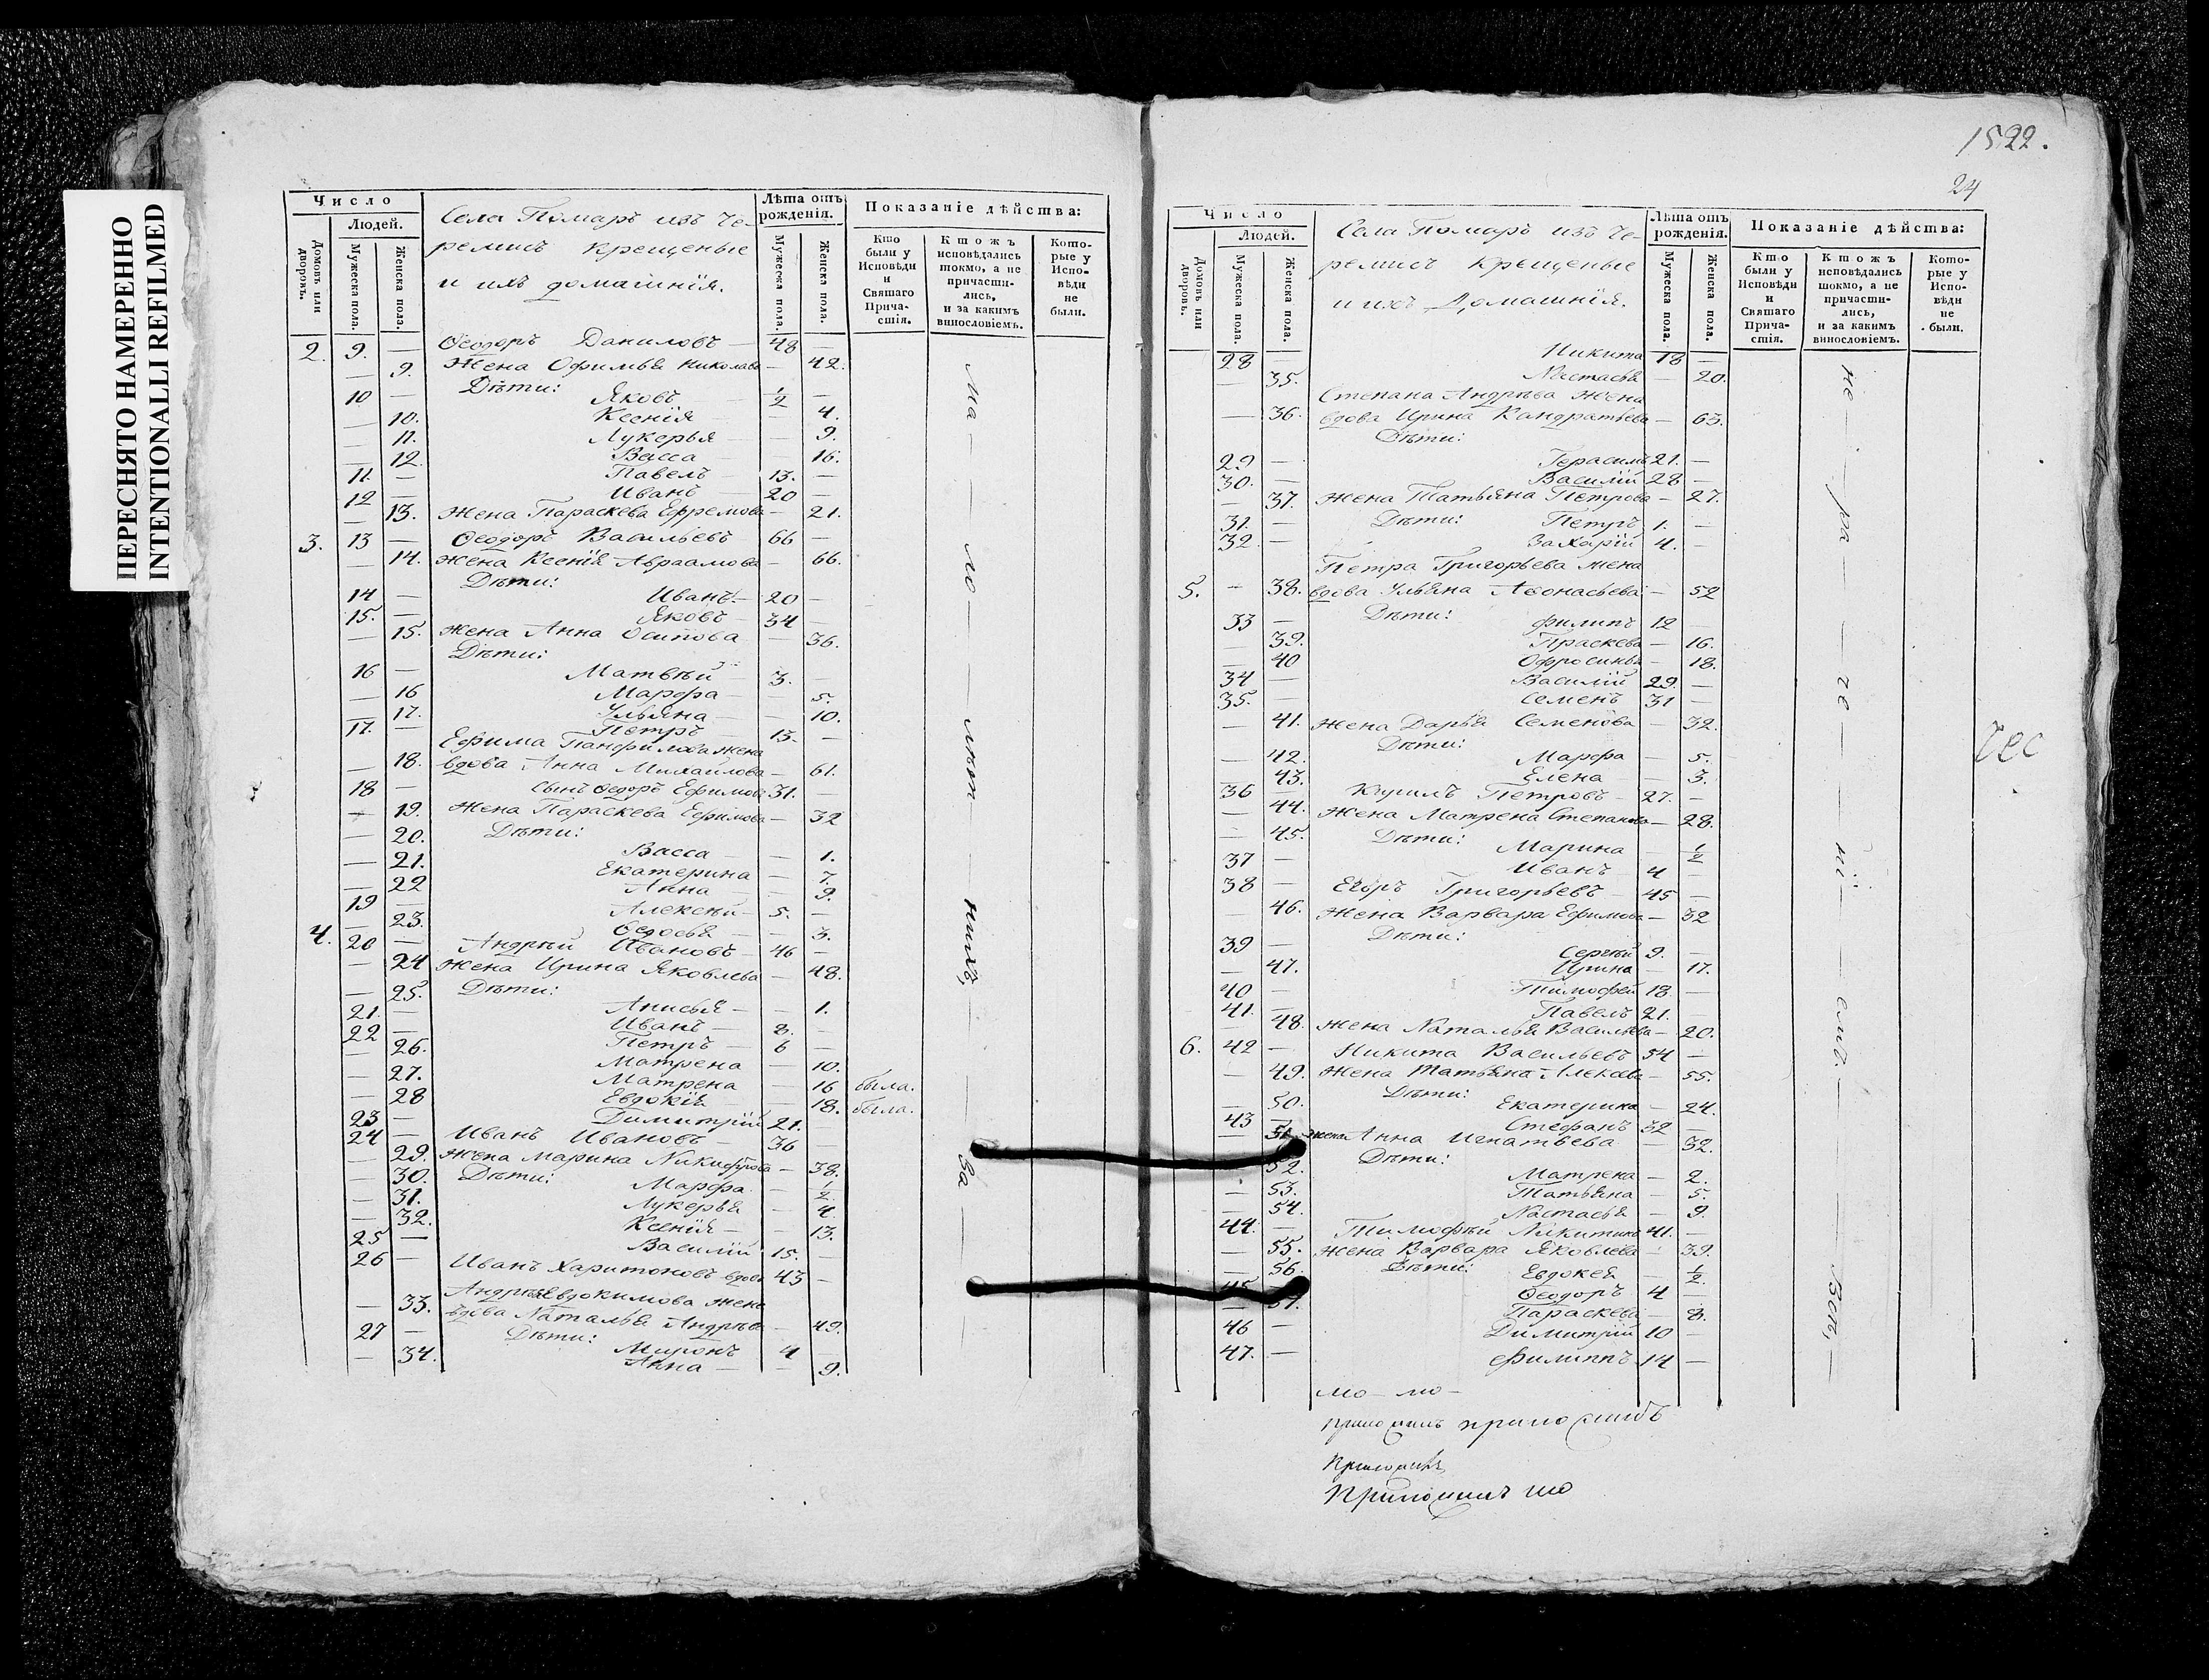 ПЕРЕСНЯТО НАМЕРЕННО
INTENTIONALLI REFILMED
Число
Людей.
Домовъ или дворовъ.
Мужеска пола.
Женска пола.
Села Помаръ изъ че-
ремисъ крещеные
и ихъ домашнїя.
Лѣта отъ рожденія.
Мужеска пола.
Женска пола.
Показаніе дѣйства:
Кто были у Исповѣди и Святаго Прича-стія.
Ктожъ исповѣдались токмо, а не причасти-лись, и за какимъ винословіемъ.
Кото-рые у Испо-вѣди не были.
2. 9. — Ѳеодоръ Даниловъ — 48 —
— 9. Жена Офимья Николаева — 42.
Дѣти:
10 — Яковъ 1/2 —
— 10. Ксенїя — 4.
— 11. Лукерья — 9.
— 12. Васса — 16.
11. — Павелъ — 13. —
12 — Иванъ — 20 —
— 13. Жена Параскева Ефремова — 21.
3. 13 — Ѳеодоръ Васильевъ — 66 —
— 14. Жена Ксенїя Авраамова — 66.
Дѣти:
14 — Иванъ — 20 —
15. — Яковъ — 34
— 15. Жена Анна Осипова — 36.
Дѣти:
16 — Матвѣй — 3. —
— 16 Марфа — 5.
— 17. Ульяна — 10.
17. — Петръ 13. —
Ефима Панфилова жена
— 18. вдова Анна Михаилова — 61.
18 — Сынъ Ѳедоръ Ефимовъ 31. —
— 19. Жена Параскева Ефимова — 32
Дѣти:
— 20. Васса — 1.
— 21. Екатерина — 7.
— 22 Анна — 9.
19 — Алексѣй — 5. —
— 23. Ѳедосья — 3.
4. 20 — Андрѣй Ивановъ — 46 —
— 24 Жена Ирина Яковлева — 48.
Дѣти:
— 25. Анисья — 1.
21. — Иванъ — 3. —
22 — Петръ — 6 —
— 26. Матрена — 10.
— 27. Матрена — 16 была.
— 28 Евдокїя — 18. была.
23 — Димитрїй 21. —
24 — Иванъ Ивановъ — 36
— 29. Жена Марина Никифорова — 38.
Дѣти:
— 30. Марфа — 1/2
— 31. Лукерья — 4
— 32. Ксенїя — 13.
25 — Василїй 15. —
26 — Иванъ Харитоновъ вдовъ 43 —
Андрѣя Евдокимова жена
— 33. вдова Наталья Андрѣева — 49.
Дѣти:
27 — Миронъ 4 —
— 34. Анна — 9.
Ма — ло — лѣт — нихъ, — За —
1522.
24
Число
Людей.
Домовъ или дворовъ.
Мужеска пола.
Женска пола.
Села Помаръ изъ че-
ремисъ крещеные
и ихъ домашнїя.
Лѣта отъ рожденія.
Мужеска пола.
Женска пола.
Показаніе дѣйства:
Кто были у Исповѣди и Святаго Прича-стія.
Ктожъ исповѣдались токмо, а не причасти-лись, и за какимъ винословіемъ.
Кото-рые у Испо-вѣди не были.
28 — Никита 18 —
— 35. Настасья — 20.
Степана Андрѣева жена
— 36. вдова Ирина Кандратьева — 63.
Дѣти:
29 — Герасимъ 21. —
30. — Василїй 28 —
— 37. Жена Татьяна Петрова — 27.
31. — Дѣти: Петръ 1. —
32. — Захарїй 4. —
Петра Григорьева жена
5. — 38. вдова Ульяна Афонасьева — 52
Дѣти:
33 — филипъ 12 —
— 39. Праскева — 16.
— 40 Офросинья — 18.
34 — Василїй 29. —
35. — Семенъ 31 —
— 41. Жена Дарья Семенова — 32.
Дѣти:
— 42. Марфа — 5.
— 43. Елена — 3.
36 — Кирилъ Петровъ — 27. —
— 44. Жена Матрена Степанова — 28.
— 45. Дѣти: Марина — 1/2
37 — Иванъ 4 —
38 — Егоръ Григорьевъ — 45 —
— 46. Жена Варвара Ефимова — 32
Дѣти:
39 — Сергѣй 9. —
— 47. Ирина — 17.
40 — Тимофей 18 —
41. — Павелъ 21. —
— 48. Жена Наталья Васильева — 20.
6. 42 — Никита Васильевъ 54 —
— 49. Жена Татьяна — 55.
Дѣти:
— 50. Екатерина — 24.
43 — Стефанъ 32 —
— 51. Жена Анна Игнатьева — 32.
Дѣти:
52. Матрена — 2.
— 53. Татьяна — 5.
— 54. Настасья — 9.
44. — Тимофѣй Никитинъ 41. —
— 55. Жена Варвара Яковлева — 39.
— 56. Дѣти: Евдокея — 1/2.
45 Ѳеодоръ 4 —
— 57. Параскева — 8.
46 — Димитрїй 10 —
47. — Филиппъ 14 —
не — ра — че — нї — емъ —
чес
мо — мо —